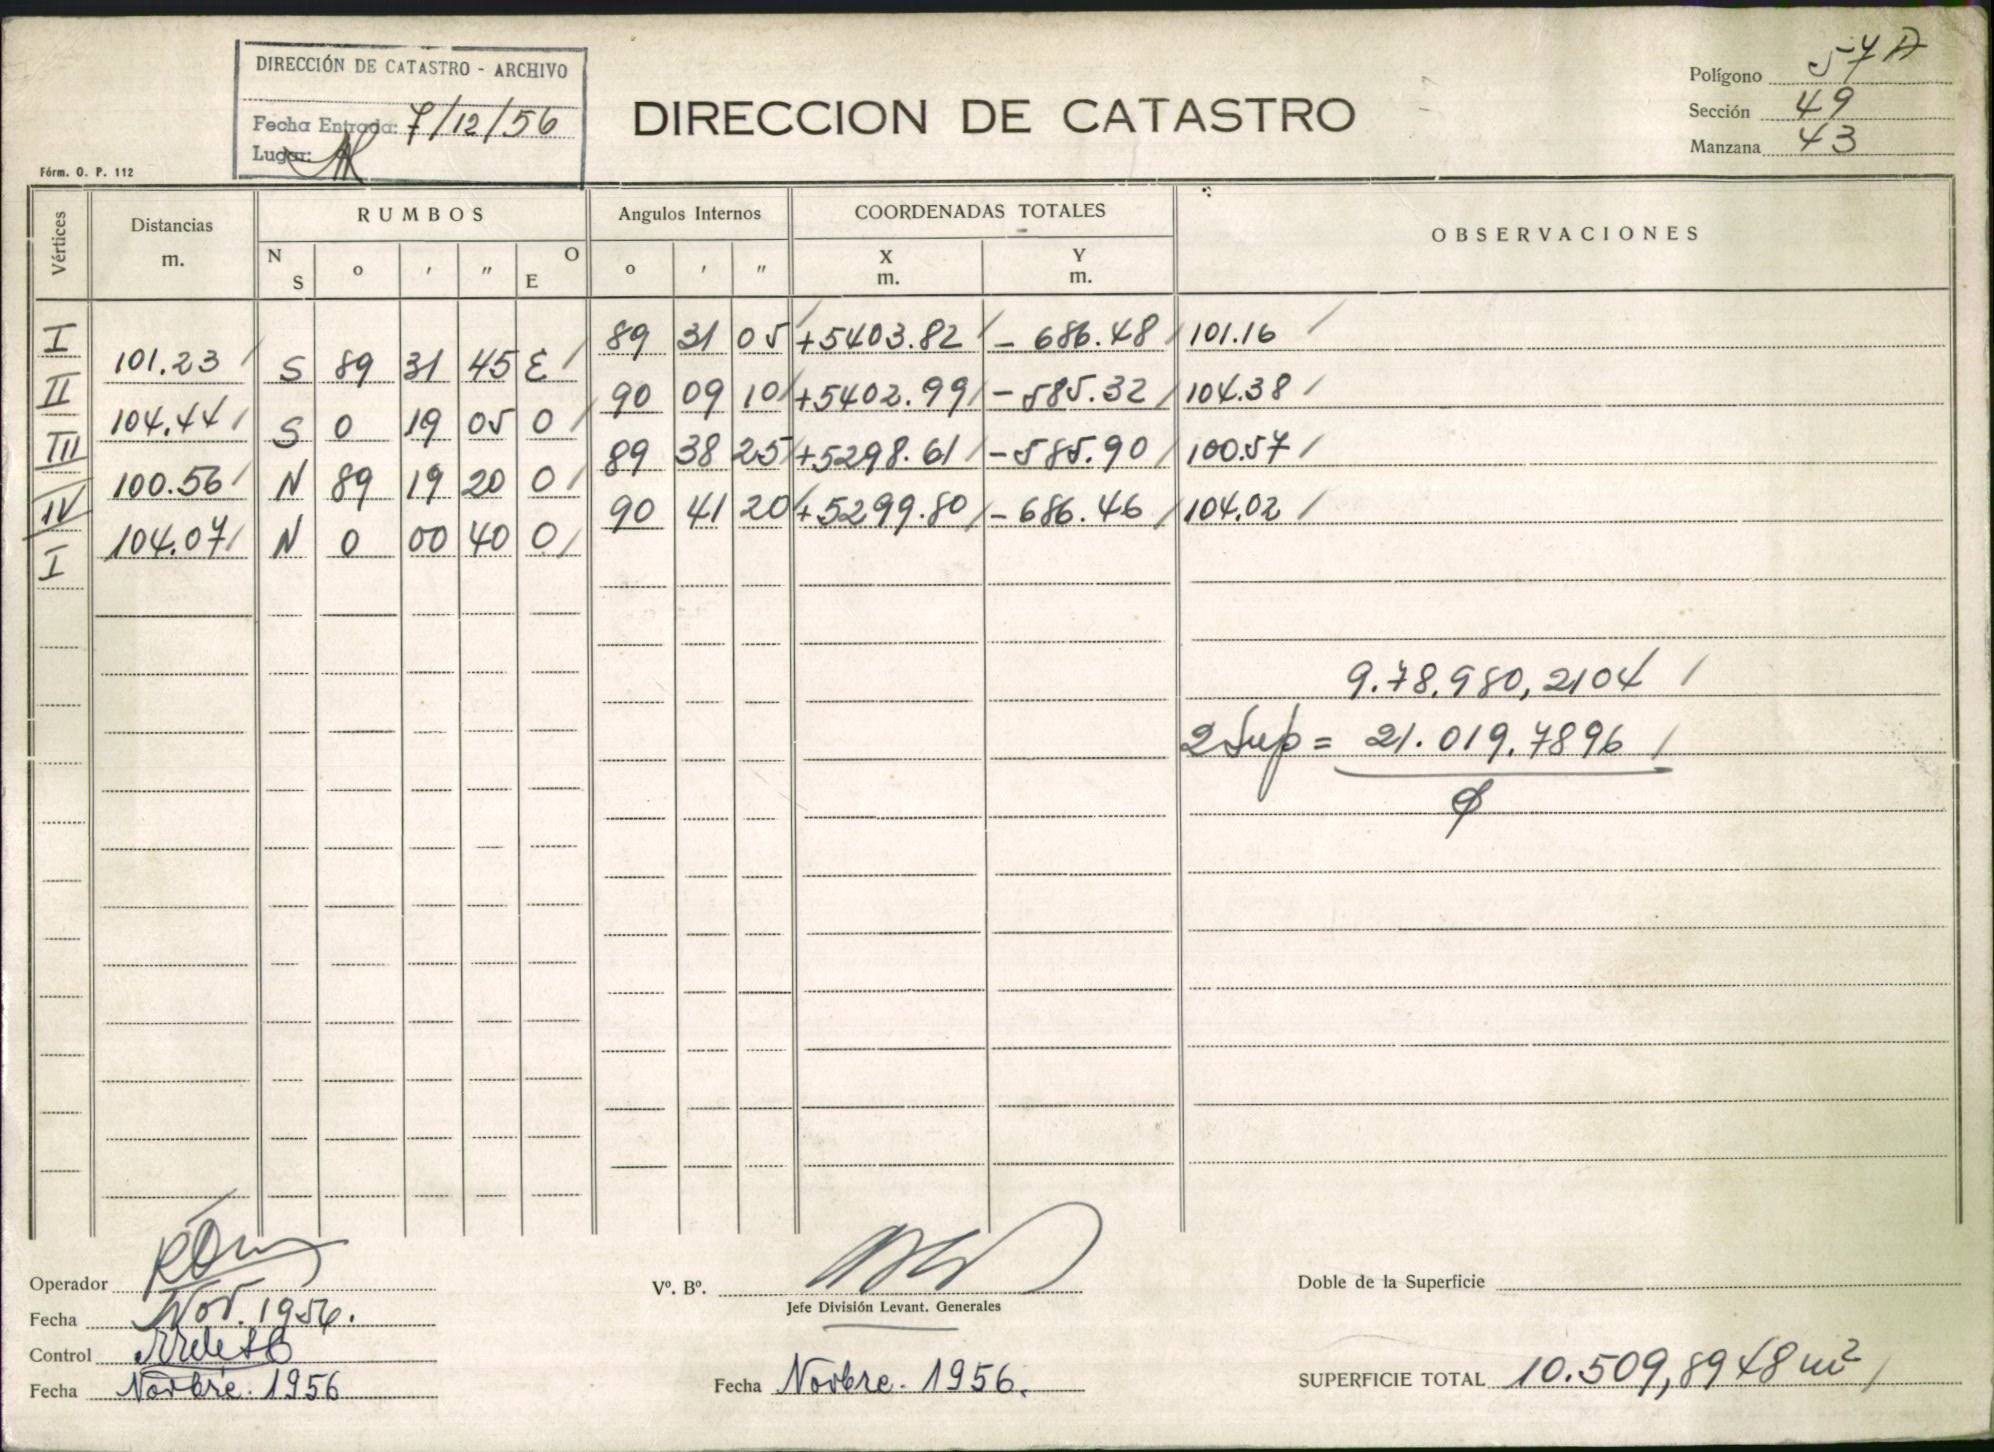 DIRECCIÓN DE CATASTRO - ARCHIVO
Fecha Entrada: 7/12/56
Lugar:
DIRECCION DE CATASTRO
Polígono 57 A
Sección 49
Manzana 43
Fórm. O. P. 112
Vértices Distancias m. RUMBOS Angulos Internos COORDENADAS TOTALES OBSERVACIONES
N S o ' " O E o ' " X m. Y m.
I 89 31 05 +5403.82 - 686.48 101.16
101.23 S 89 31 45 E
II 90 09 10 +5402.99 - 585.32 104.38
104.44 S 0 19 05 O
III 89 38 25 +5298.61 - 585.90 100.57
100.56 N 89 19 20 O
IV 90 41 20 +5299.80 - 686.46 104.02
104.07 N 0 00 40 O
I
9.78.980,2104
2 Sup = 21.019.7896
Operador
Fecha Nov. 1956.
Control
Fecha Novbre. 1956
Vº. Bº.
Jefe División Levant. Generales
Fecha Novbre. 1956.
Doble de la Superficie
SUPERFICIE TOTAL 10.509,8948 m²